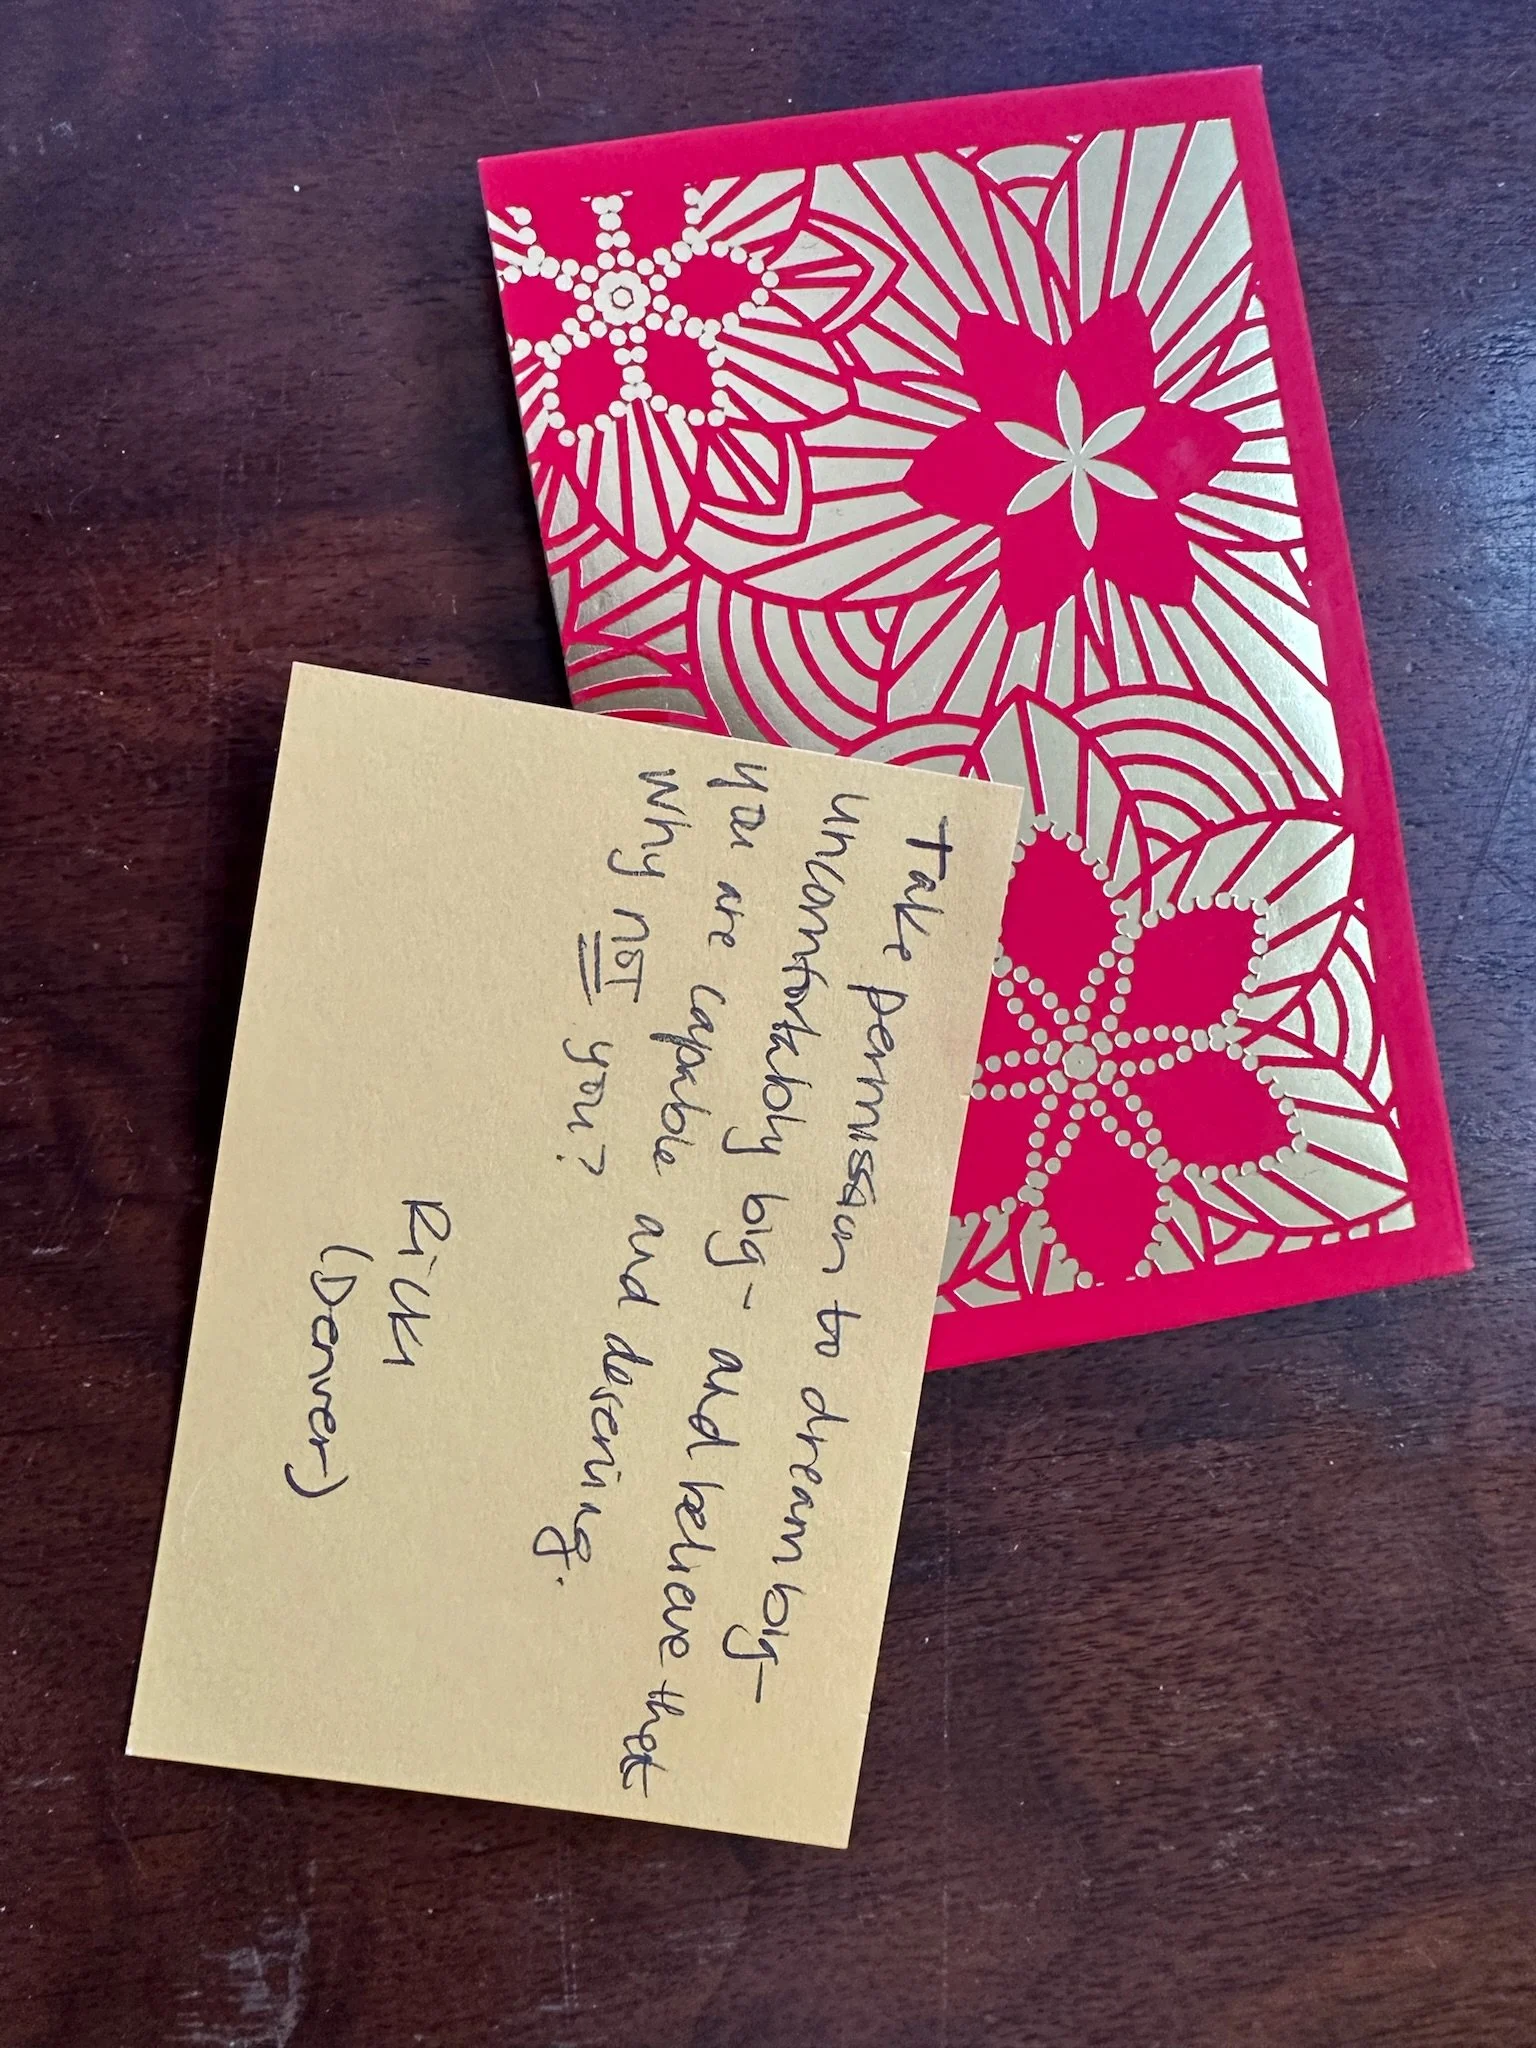 Take permission to dream big-
uncomfortably big - and believe that
you are capable and deserving.
Why not you?
Ricki
(Denver)